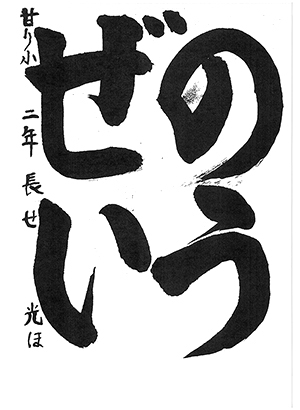 のう
ぜい
甘り小 二年 長せ 光ほ